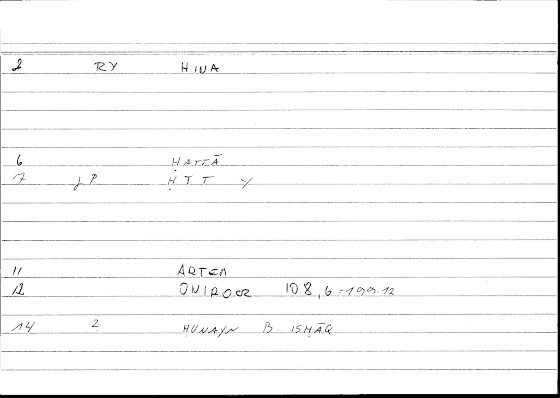 2 RY HINA
6 ḤATTĀ
7 JP ḤTT Y
11 ARTEM
12 ONIROCR 108,6-199.12
14 2 ḤUNAYN B ISḤĀQ